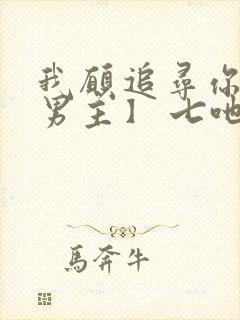 我願追尋你
男主】 七吔
馬奔牛